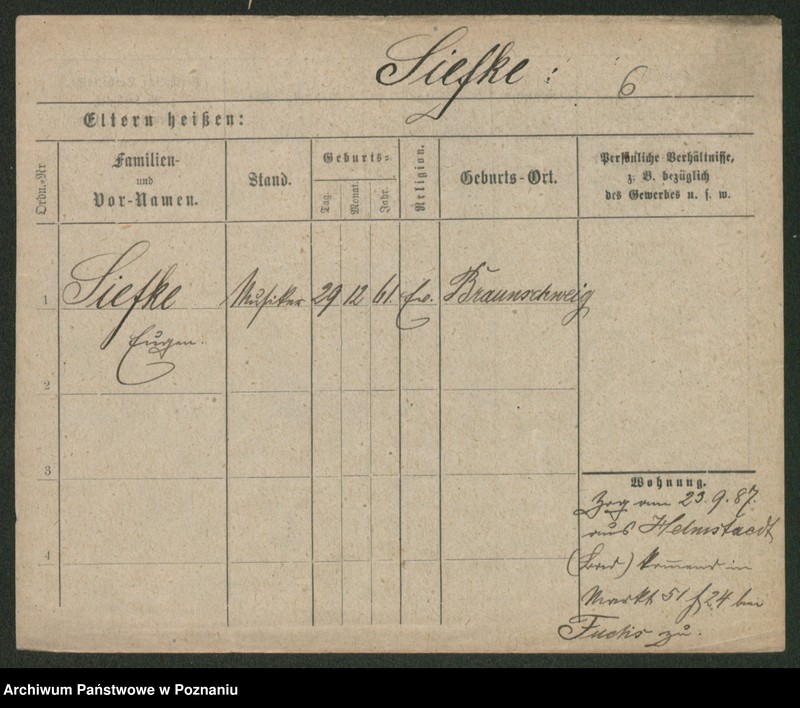 Siefke : 6
Eltern heißen:
Ordn.-Nr
Familien-
und
Vor-Namen.
Stand.
Geburts-
Tag.
Monat.
Jahr.
Religion.
Geburts-Ort.
Persönliche Verhältnisse,
z. B. bezüglich
des Gewerbes u. s. w.
1 Siefke Musiker 29 12 61. Ev. Braunschweig
Eugen.
2
3
4
Wohnung.
Zog am 23.9.87.
aus Helmstaedt
kommend in
Markt 51 24 bei
Fuchs zu.
Archiwum Państwowe w Poznaniu